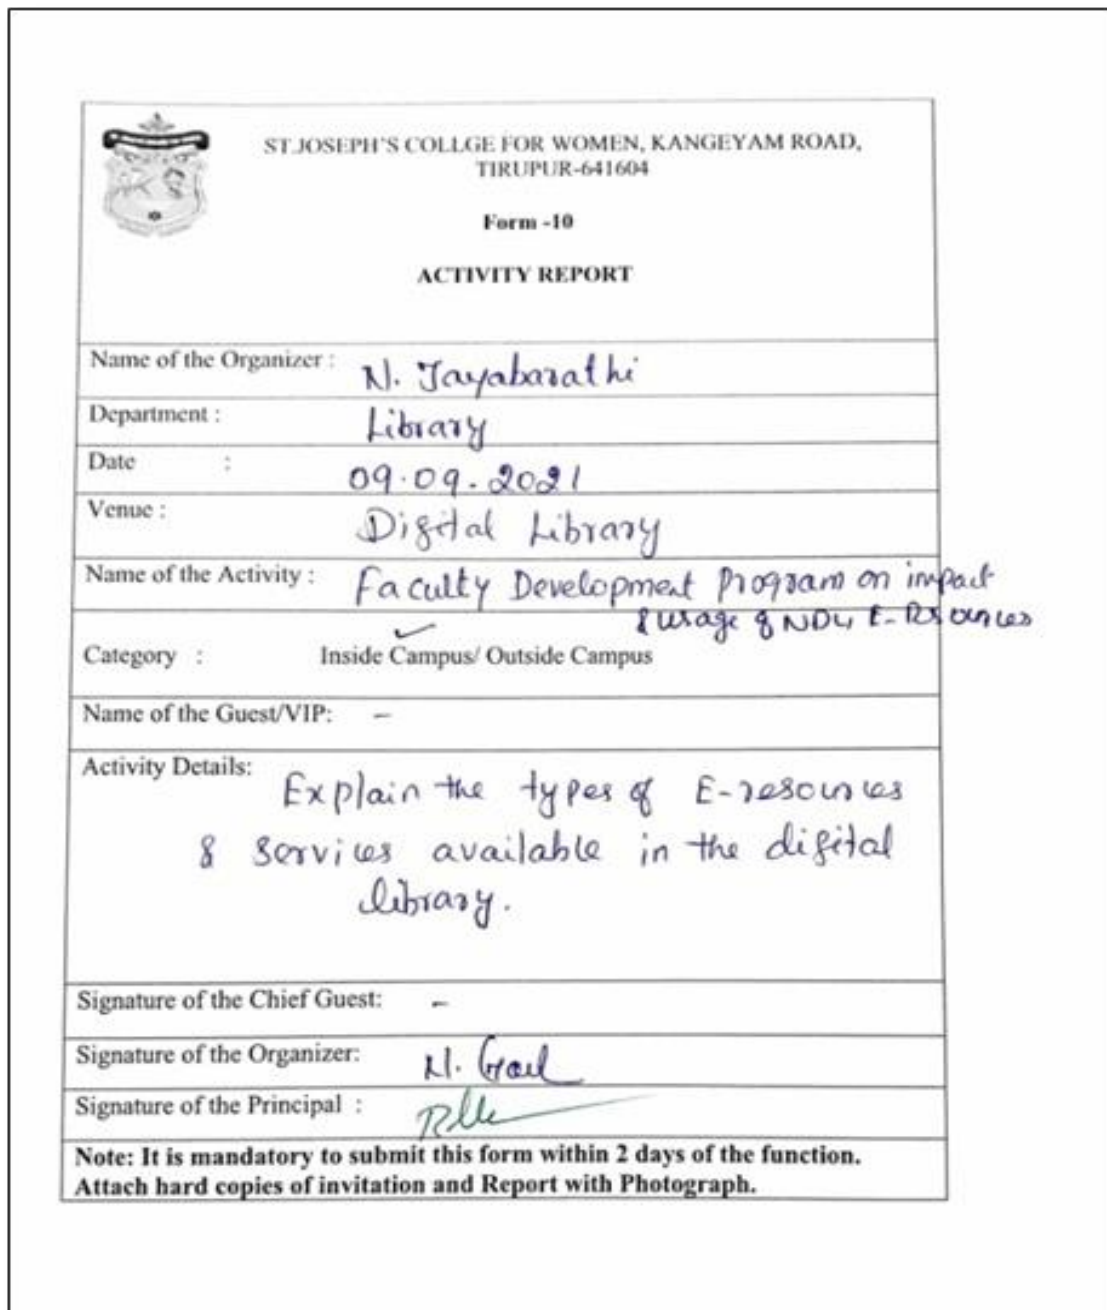 ST.JOSEPH'S COLLGE FOR WOMEN, KANGEYAM ROAD,
TIRUPUR-641604
Form -10
ACTIVITY REPORT
Name of the Organizer : N. Jayabarathi
Department : Library
Date : 09.09.2021
Venue : Digital Library
Name of the Activity : Faculty Development Program on impact
& usage of NDLI E-Resources
Category : Inside Campus/ Outside Campus
Name of the Guest/VIP: -
Activity Details: Explain the types of E-resources
& services available in the digital
library.
Signature of the Chief Guest: -
Signature of the Organizer: N.
Signature of the Principal :
Note: It is mandatory to submit this form within 2 days of the function.
Attach hard copies of invitation and Report with Photograph.